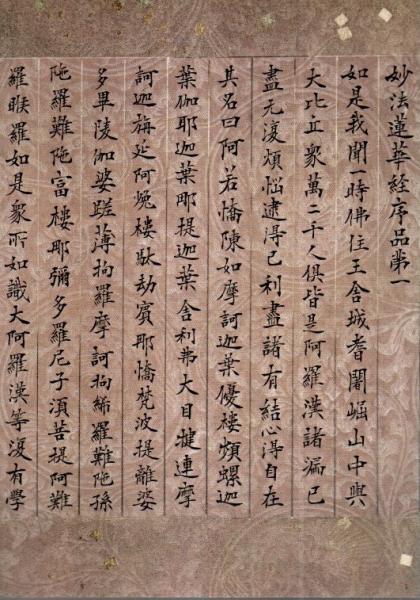 妙法蓮華經序品第一
如是我聞一時佛住王舍城耆闍崛山中與
大比丘衆萬二千人俱皆是阿羅漢諸漏已
盡无復煩惱逮得已利盡諸有結心得自在
其名曰阿若憍陳如摩訶迦葉優樓頻螺迦
葉伽耶迦葉那提迦葉舍利弗大目揵連摩
訶迦旃延阿㝹樓馱劫賓那憍梵波提離婆
多畢陵伽婆蹉薄拘羅摩訶拘絺羅難陁孫
陁羅難陁富樓那彌多羅尼子須菩提阿難
羅睺羅如是衆所知識大阿羅漢等復有學